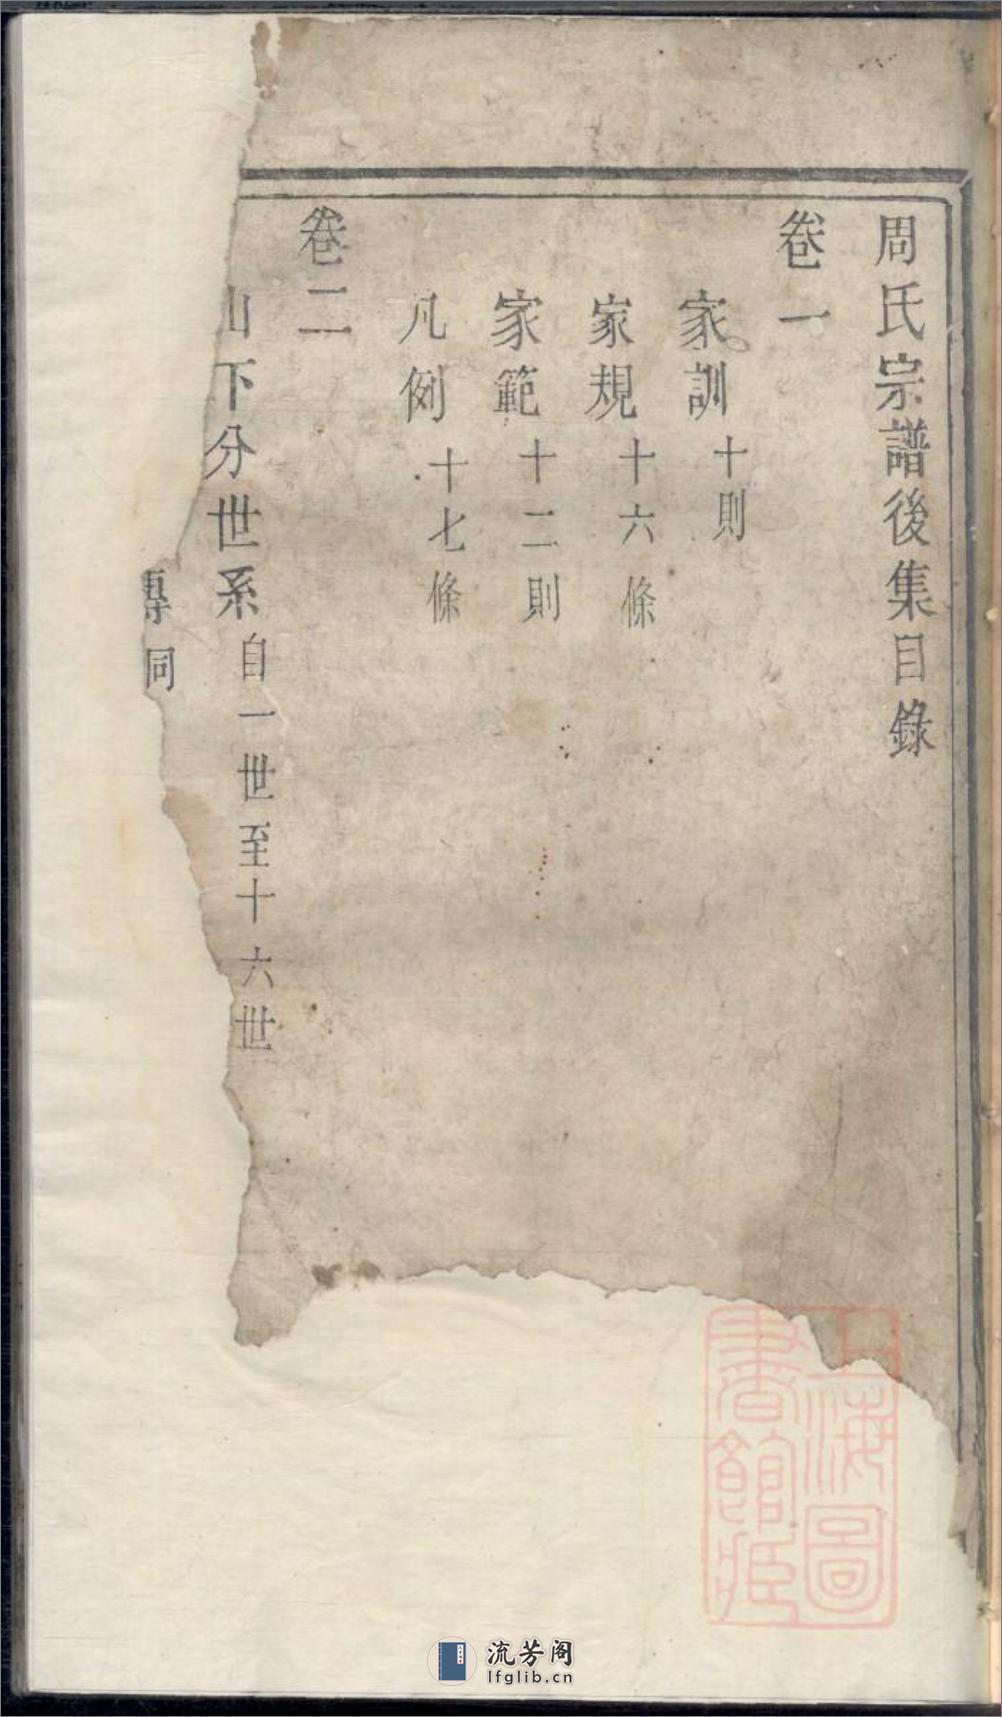 周氏宗譜後集目錄
卷一
家訓十則
家規十六條
家範十二則
凡例十七條
卷二
山下分世系自一世至十六世
傳同
上海圖書館藏
流芳阁
lfglib.cn